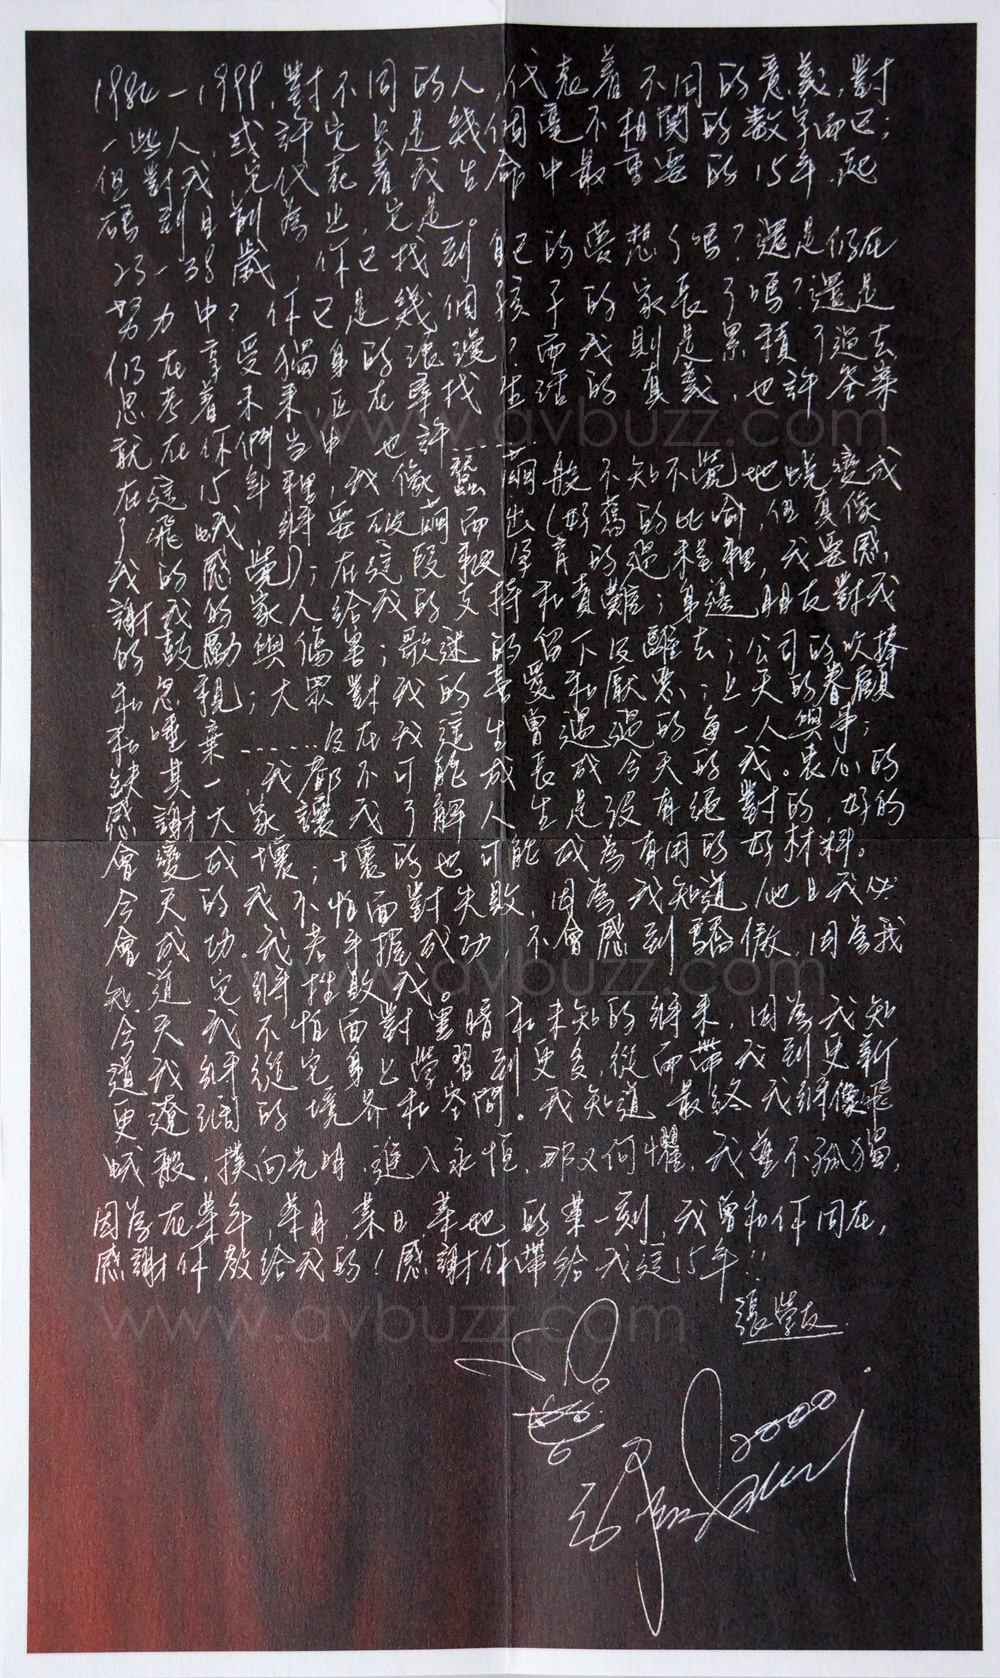 1984－1999，對不同的人代表着不同的意義，對
一些人，或許它只是幾個毫不相關的數字而已；
但對我，它代表着我生命中最重要的15年，起
碼到目前為止它是。
23－38歲，你已找到自己的夢想了嗎？還是仍在
努力中？你已是幾個孩子的家長了嗎？還是
仍在享受獨身的浪漫？而我則是累積了過去
思考着未來，正在尋找生活的真義，也許答案
就在你們當中，也許......
在這15年裡，我像蠶繭般不知不覺地蛻變成
了飛蛾，將要破繭而出（好舊的比喻，但真像
我的感覺）；在這段孕育的過程裡，我要感
謝我的家人給我的支持和責難；身邊朋友對我
的鼓勵與傷害；歌迷的留下及離去；公司的吹捧
和忽視；大眾對我的喜愛和厭惡；上天的眷顧
和唾棄......及在我這生曾遇過的每一人與事；
缺其一，都不可能成長成今天的我。衷心的
感謝大家讓我了解人生是沒有絕對的，好的
會變成壞；壞的也可能成為有用的好材料。
今天的我不怕面對失敗，因為我知道，他日我必
會成功．我若手握成功，不會感到驕傲，因為我
知道它將 我。
今天我不怕面對黑暗和未知的將來，因為我知
道我將從它身上學習到更多，從而帶我到更新
更遼闊的境界和空間。我知道最終我將像飛
蛾般，撲向光明，進入永恒，那又何懼，我並不孤獨，
因為在某年，某月，某日，某地的某一刻，我曾和你同在，
感謝你教給我的！感謝你帶給我這15年!!
張學友
2000
www.avbuzz.com
www.avbuzz.com
www.avbuzz.com
www.avbuzz.com